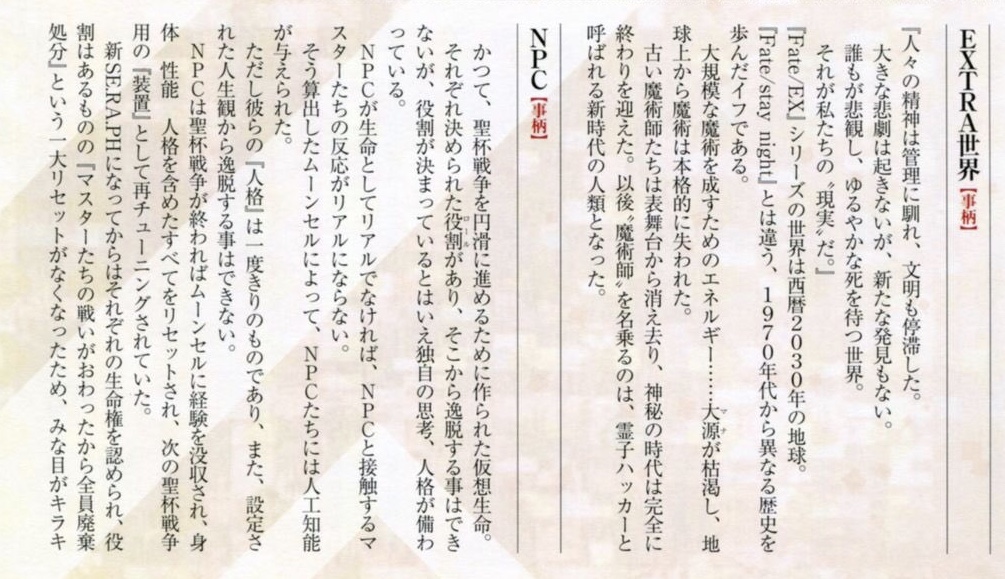 EXTRA世界【事柄】
『人々の精神は管理に馴れ、文明も停滞した。
大きな悲劇は起きないが、新たな発見もない。
誰もが悲観し、ゆるやかな死を待つ世界。
それが私たちの〝現実〟だ。』
『Fate/EX』シリーズの世界は西暦2030年の地球。
『Fate/stay night』とは違う、1970年代から異なる歴史を
歩んだイフである。
大規模な魔術を成すためのエネルギー……大源が枯渇し、地
マナ
球上から魔術は本格的に失われた。
古い魔術師たちは表舞台から消え去り、神秘の時代は完全に
終わりを迎えた。以後〝魔術師〟を名乗るのは、霊子ハッカーと
呼ばれる新時代の人類となった。
NPC【事柄】
かつて、聖杯戦争を円滑に進めるために作られた仮想生命。
それぞれ決められた役割があり、そこから逸脱する事はでき
ロール
ないが、役割が決まっているとはいえ独自の思考、人格が備わ
っている。
NPCが生命としてリアルでなければ、NPCと接触するマ
スターたちの反応がリアルにならない。
そう算出したムーンセルによって、NPCたちには人工知能
が与えられた。
ただし彼らの『人格』は一度きりのものであり、また、設定さ
れた人生観から逸脱する事はできない。
NPCは聖杯戦争が終わればムーンセルに経験を没収され、身
体 性能 人格を含めたすべてをリセットされ、次の聖杯戦争
用の『装置』として再チューニングされていた。
新SE.RA.PHになってからはそれぞれの生命権を認められ、役
割はあるものの『マスターたちの戦いがおわったから全員廃棄
処分』という一大リセットがなくなったため、みな目がキラキ